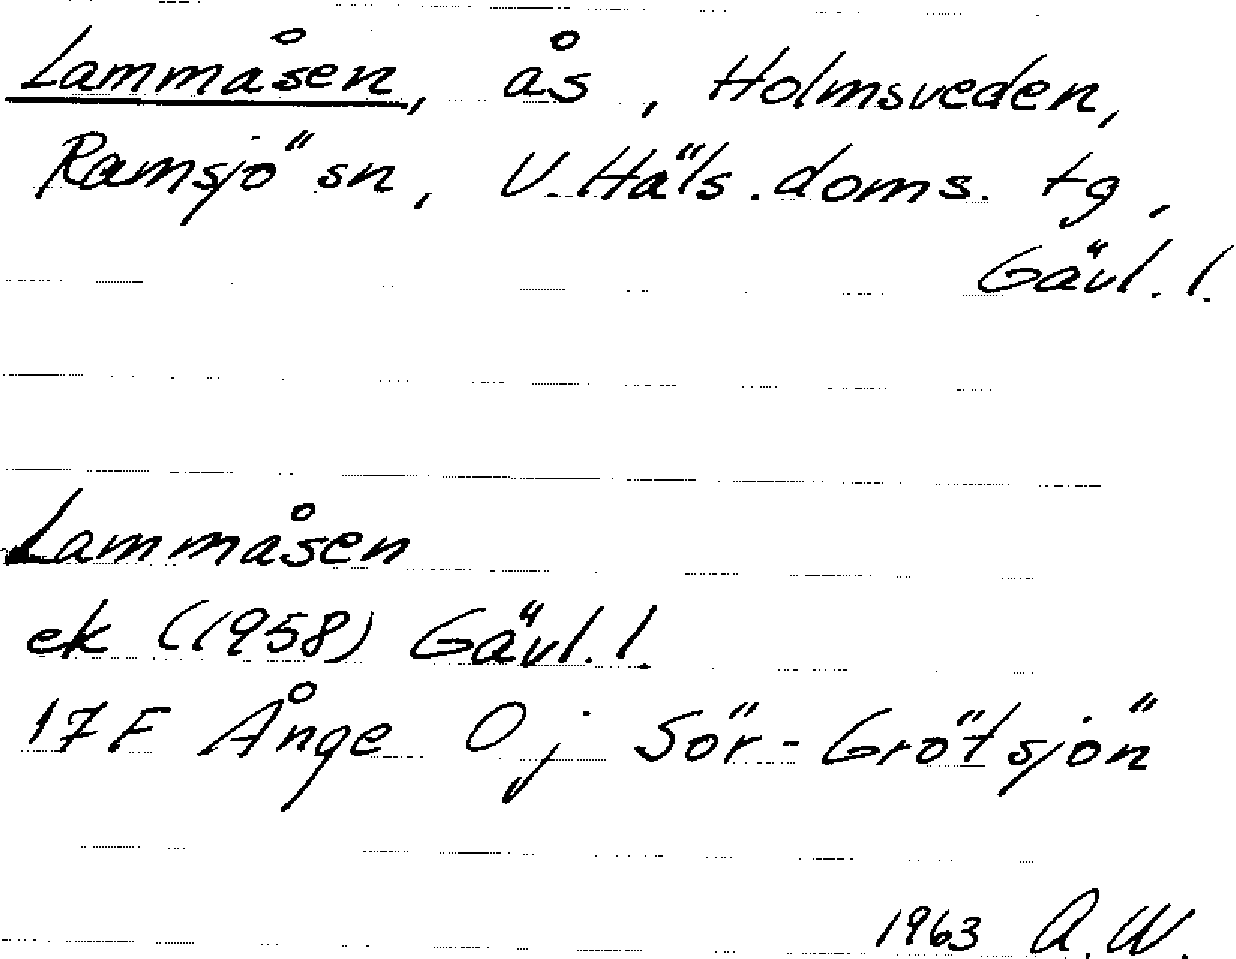 Lammåsen, ås, Holmsveden,
Ramsjö sn, V. Häls. doms. tg,
Gävl. l.
Lammåsen
ek (1958) Gävl. l.
17F Ånge 0j Sör-Grötsjön
1963 A.W.